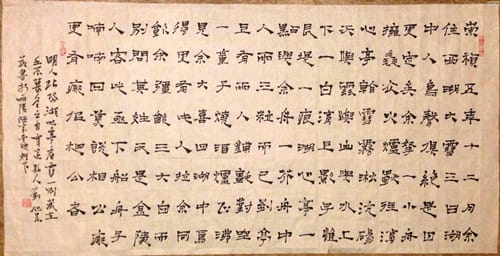 崇禎五年十二月余
住西湖大雪三日湖
中人鳥聲俱絕是日
更定矣余拏一小舟
擁毳衣爐火獨往湖
心亭看雪霧淞沆碭
天與雲與山與水上
下一白湖上影子惟
長堤一痕湖心亭一
點與余舟一芥舟中
人兩三粒而已到亭
上有兩人鋪氈對坐
一童子燒酒爐正沸
見余大喜曰湖中焉
得更有此人拉余同
飲余強飲三大白而
別問其姓氏是金陵
人客此及下船舟子
喃喃曰莫說相公癡
更有癡似相公者
明人張岱湖心亭看雪一則歲在
壬辰